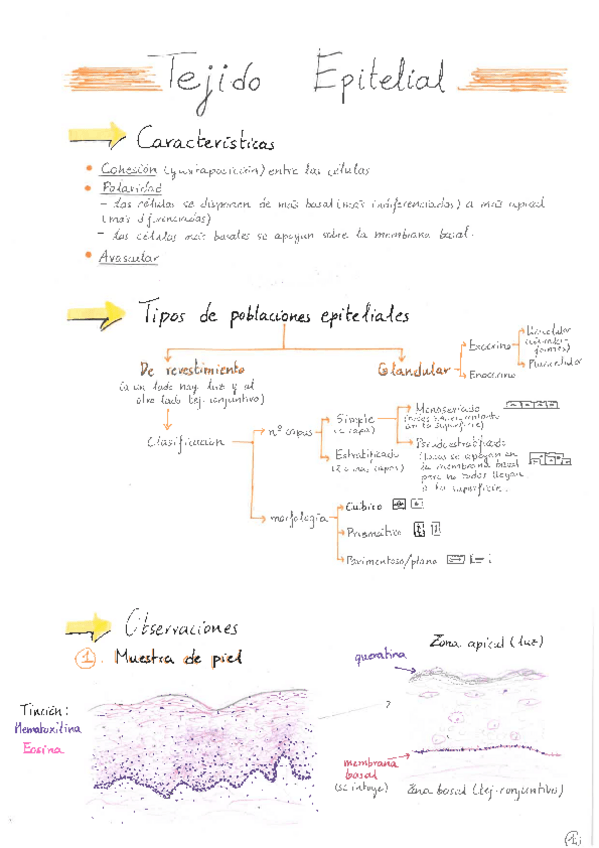 Tejido Epitelial
Características
• Cohesión (yuxtaposición) entre las células
• Polaridad
- Las células se disponen de más basal (más indiferenciadas) a más apical
(más diferenciadas)
- Las células más basales se apoyan sobre la membrana basal.
• Avascular
Tipos de poblaciones epiteliales
De revestimiento
(a un lado hay luz y al
otro lado tej. conjuntivo)
Glandular
Exocrino
Unicelular
Pluricelular
Endocrino
Clasificación
nº capas
Simple
(1 capa)
Monoseriado
en la superficie)
Pseudoestratificado
(todas se apoyan en
la membrana basal
pero no todas llegan
a la superficie.
Estratificado
(2 o más capas)
morfología
Cúbico
Prismático
Pavimentoso/plano
Observaciones
1. Muestra de piel
Tinción:
Hematoxilina
Eosina
Zona apical (luz)
queratina
?
membrana
basal
(se intuye)
Zona basal (tej. conjuntivo)
1